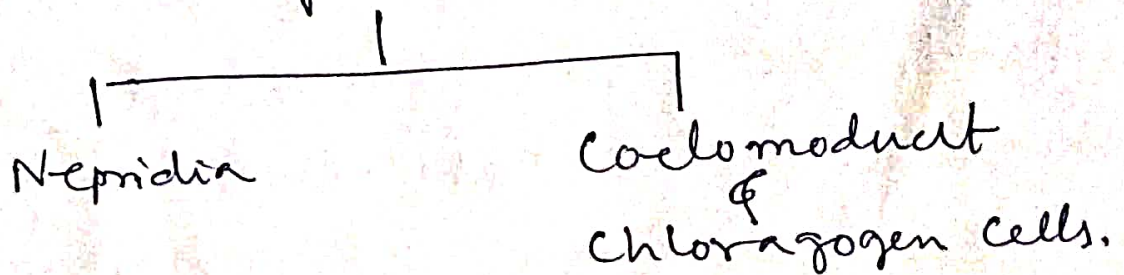 Nepridia
Coelomoduct
&
Chloragogen cells.